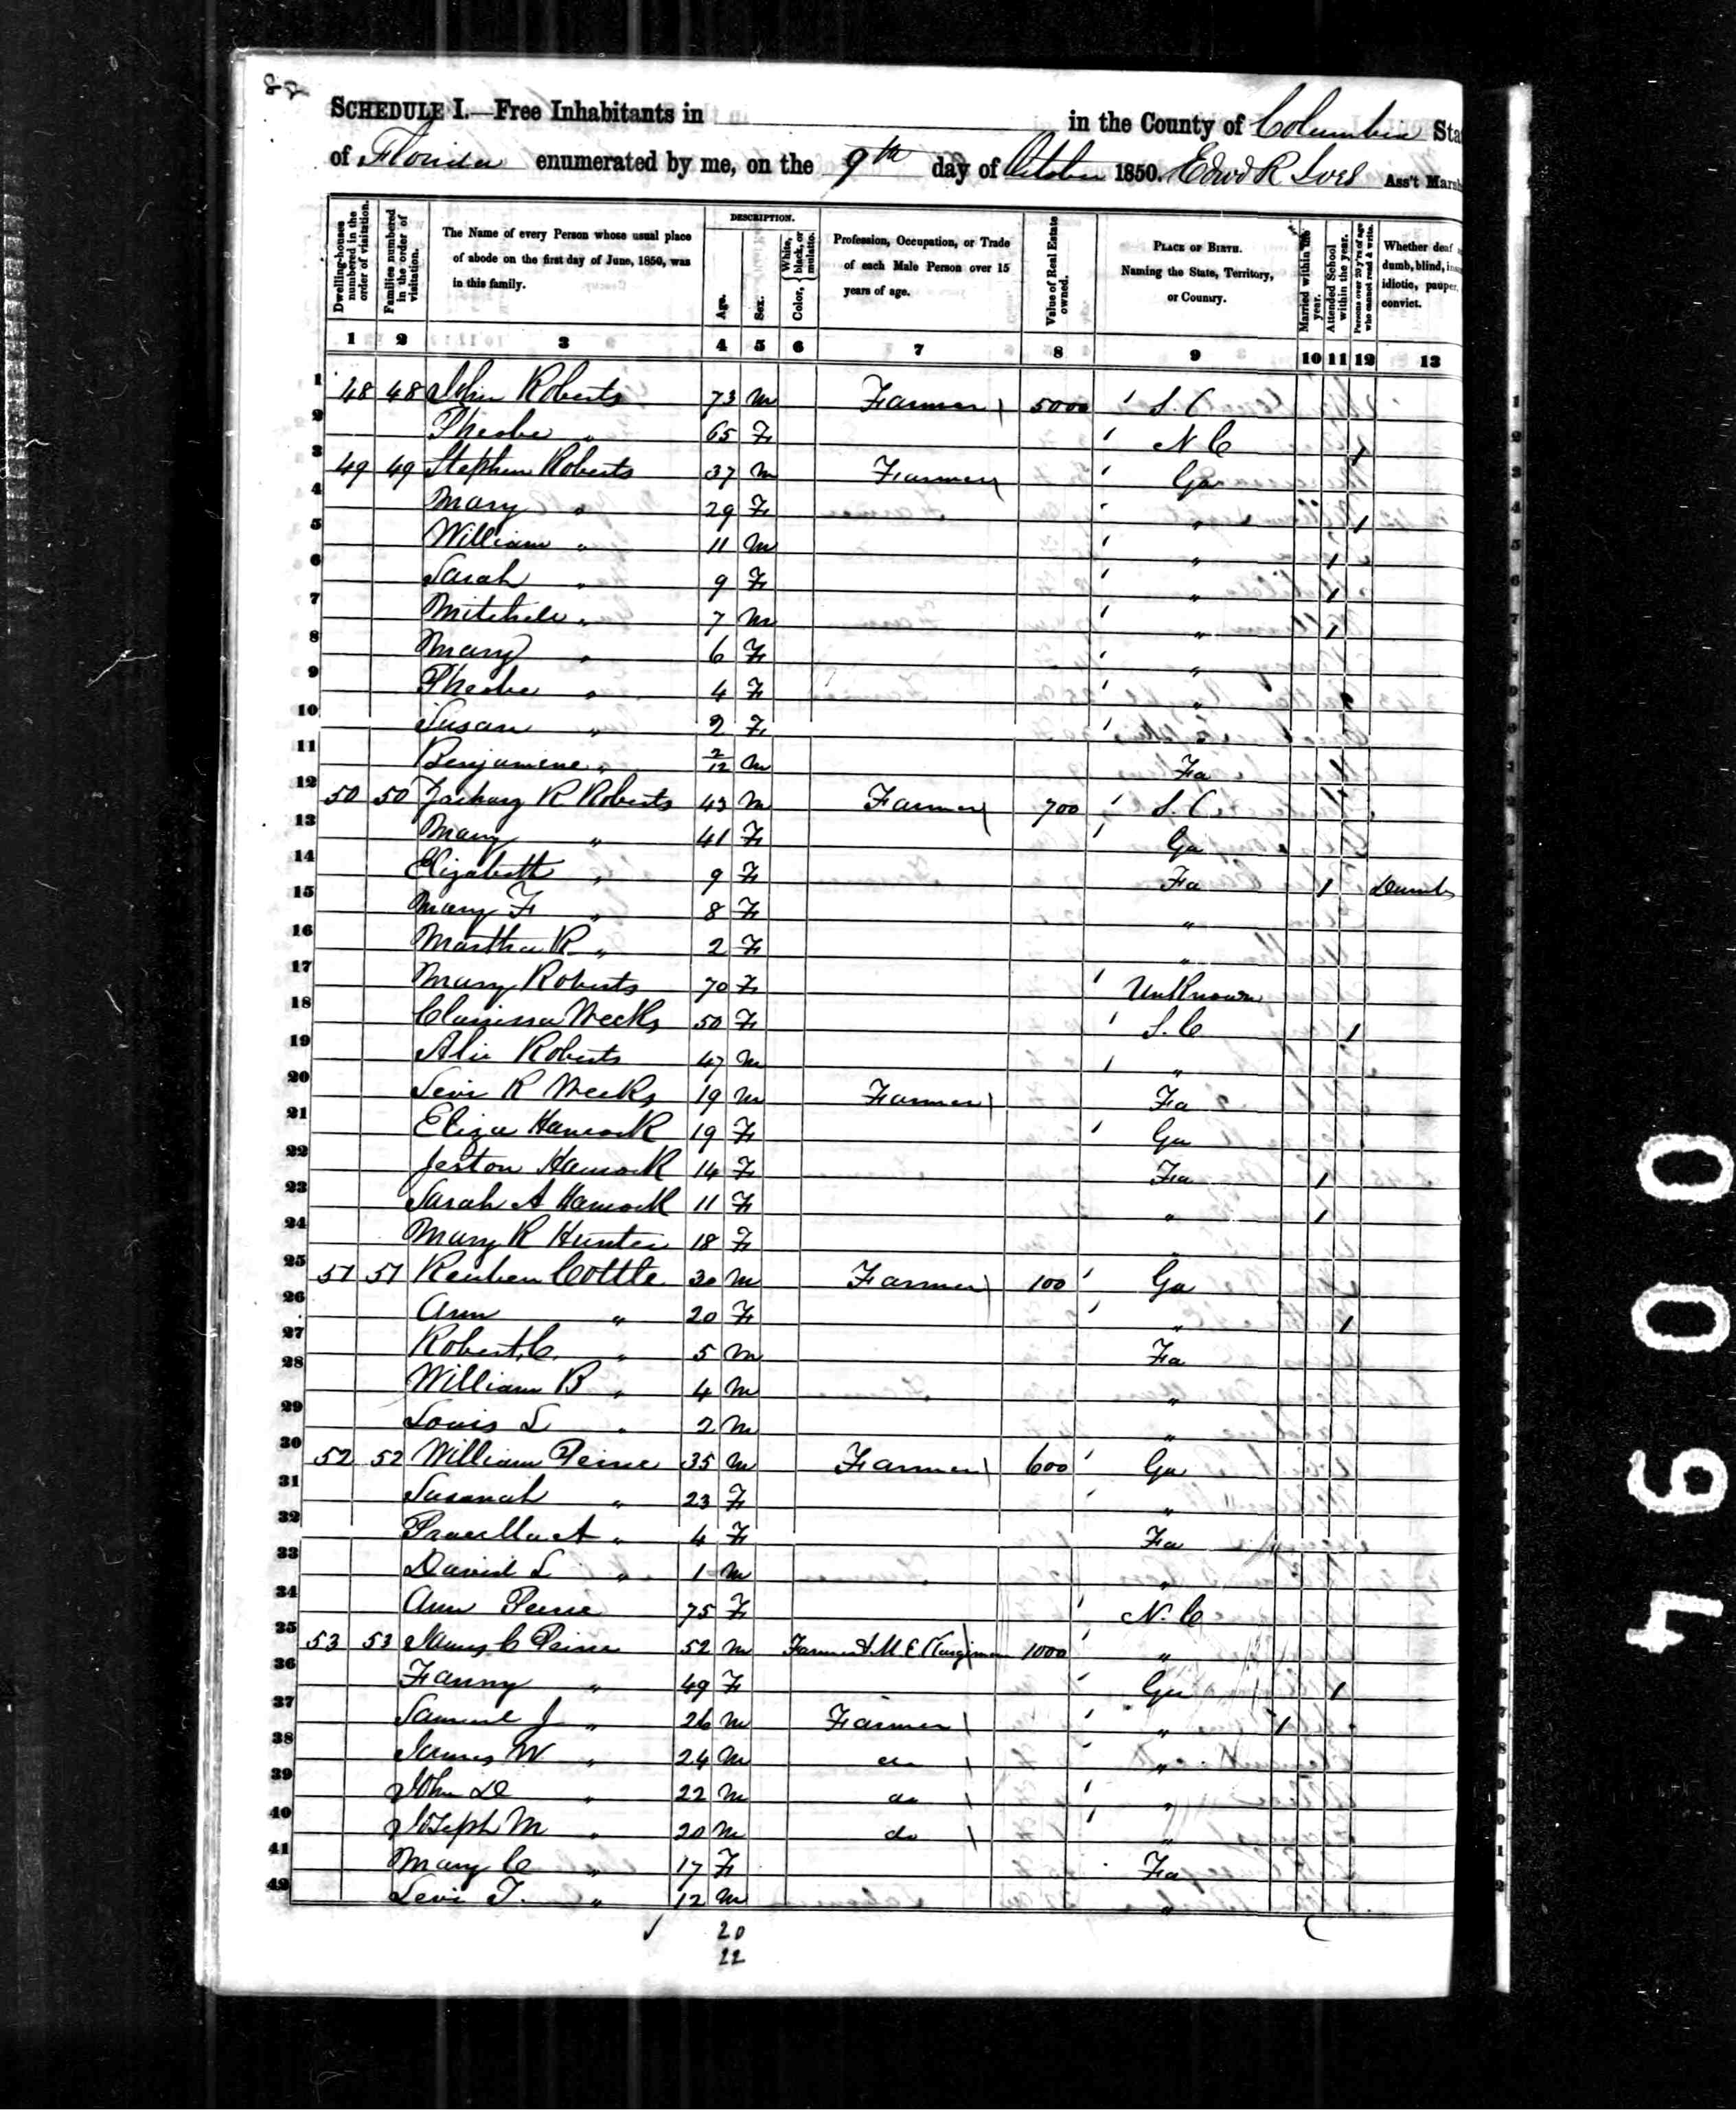 82
SCHEDULE I.—Free Inhabitants in in the County of Columbia Sta
of Florida enumerated by me, on the 9th day of October 1850. Edwd R Ives Ass't Marsh
Dwelling-houses numbered in the order of visitation.
Families numbered in the order of visitation.
The Name of every Person whose usual place of abode on the first day of June, 1850, was in this family.
DESCRIPTION.
Age.
Sex.
Color, White, black, or mulatto.
Profession, Occupation, or Trade of each Male Person over 15 years of age.
Value of Real Estate owned.
PLACE OF BIRTH. Naming the State, Territory, or Country.
Married within the year.
Attended School within the year.
Persons over 20 y'rs of age who cannot read & write.
Whether deaf dumb, blind, idiotic, pauper, convict.
1 2 3 4 5 6 7 8 9 10 11 12 13
1 48 48 John Roberts 73 M Farmer 5000 S. C 1
2 Pheobe " 65 F N C 1 2
3 49 49 Stephen Roberts 37 M Farmer Ga 3
4 Mary " 29 F " 1 4
5 William " 11 M " 1 5
6 Sarah " 9 F " 1 6
7 Mitchele " 7 M " 1 7
8 Mary " 6 F " 8
9 Pheobe " 4 F "
10 Susan " 2 F "
11 Benjamine " 2/12 M Fa
12 50 50 Zachary R Roberts 43 M Farmer 700 S. C.
13 Mary " 41 F Ga
14 Elizabeth " 9 F Fa 1 Dumb
15 Mary F " 8 F "
16 Martha R " 2 F "
17 Mary Roberts 70 F Unknown
18 Clarissa Weeks 50 F S. C 1
19 Roberts 47 M "
20 Levi R Weeks 19 M Farmer Fa
21 Eliza Hancock 19 F Ga
22 Jeston Hancock 14 F Fa 1
23 Sarah A Hancock 11 F " 1
24 Mary R Hunter 18 F "
25 51 51 Reuben Cottle 30 M Farmer 100 Ga
26 Ann " 20 F " 1
27 Robert C. " 5 M Fa
28 William B " 4 M "
29 Louis L " 2 M "
30 52 52 William Peirce 35 M Farmer 600 Ga
31 Susanah " 23 F "
32 A " 4 F Fa
33 David L " 1 M "
34 Ann Peirce 75 F N. C
35 53 53 James C Peirce 52 M Farmer & M E Clergiman 1000 "
36 Fanny " 49 F Ga 1
37 Samuel J " 26 M Farmer " 1
38 James W " 24 M do "
39 John D " 22 M do "
40 Joseph M " 20 M do "
41 Mary C " 17 F Fa
42 Levi T. " 12 M "
20
22
00694